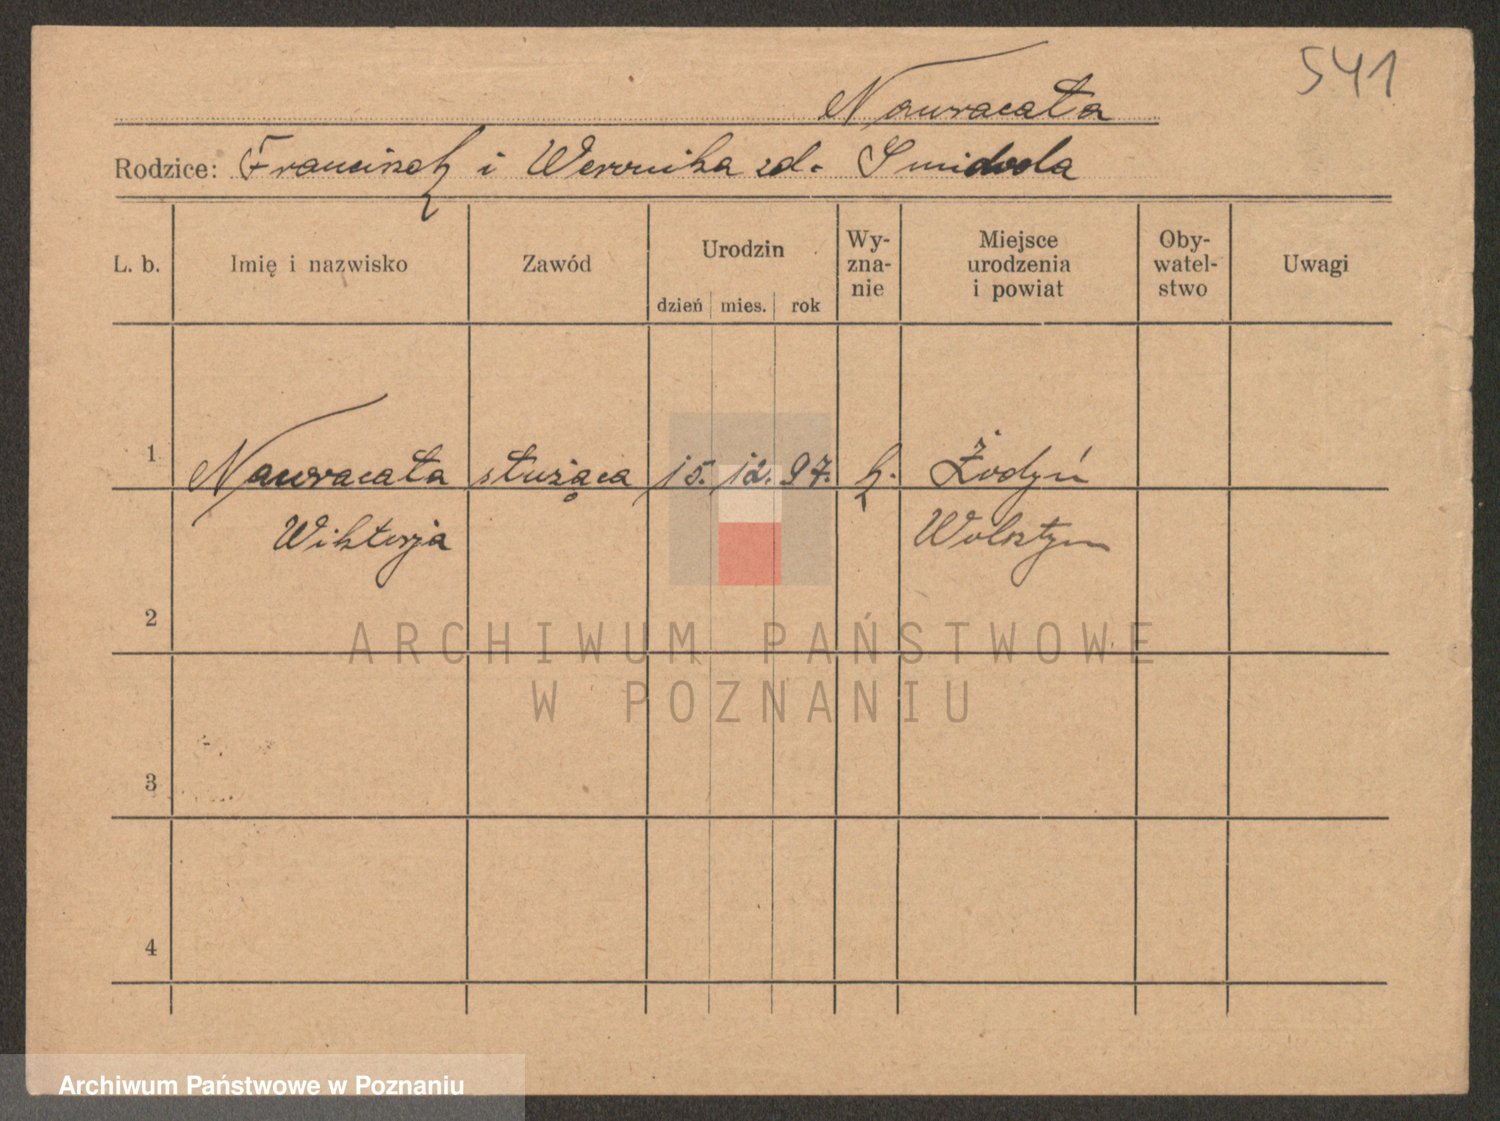 541
Nawracała
Rodzice: Franciszek i Weronika zd.
L. b. Imię i nazwisko Zawód Urodzin dzień mies. rok Wy-zna-nie Miejsce urodzenia i powiat Oby-watel-stwo Uwagi
1 Nawracała służąca 15. 12. 97. k. Żodyń
Wiktorja Wolsztyn
2
ARCHIWUM PAŃSTWOWE
W POZNANIU
3
4
Archiwum Państwowe w Poznaniu